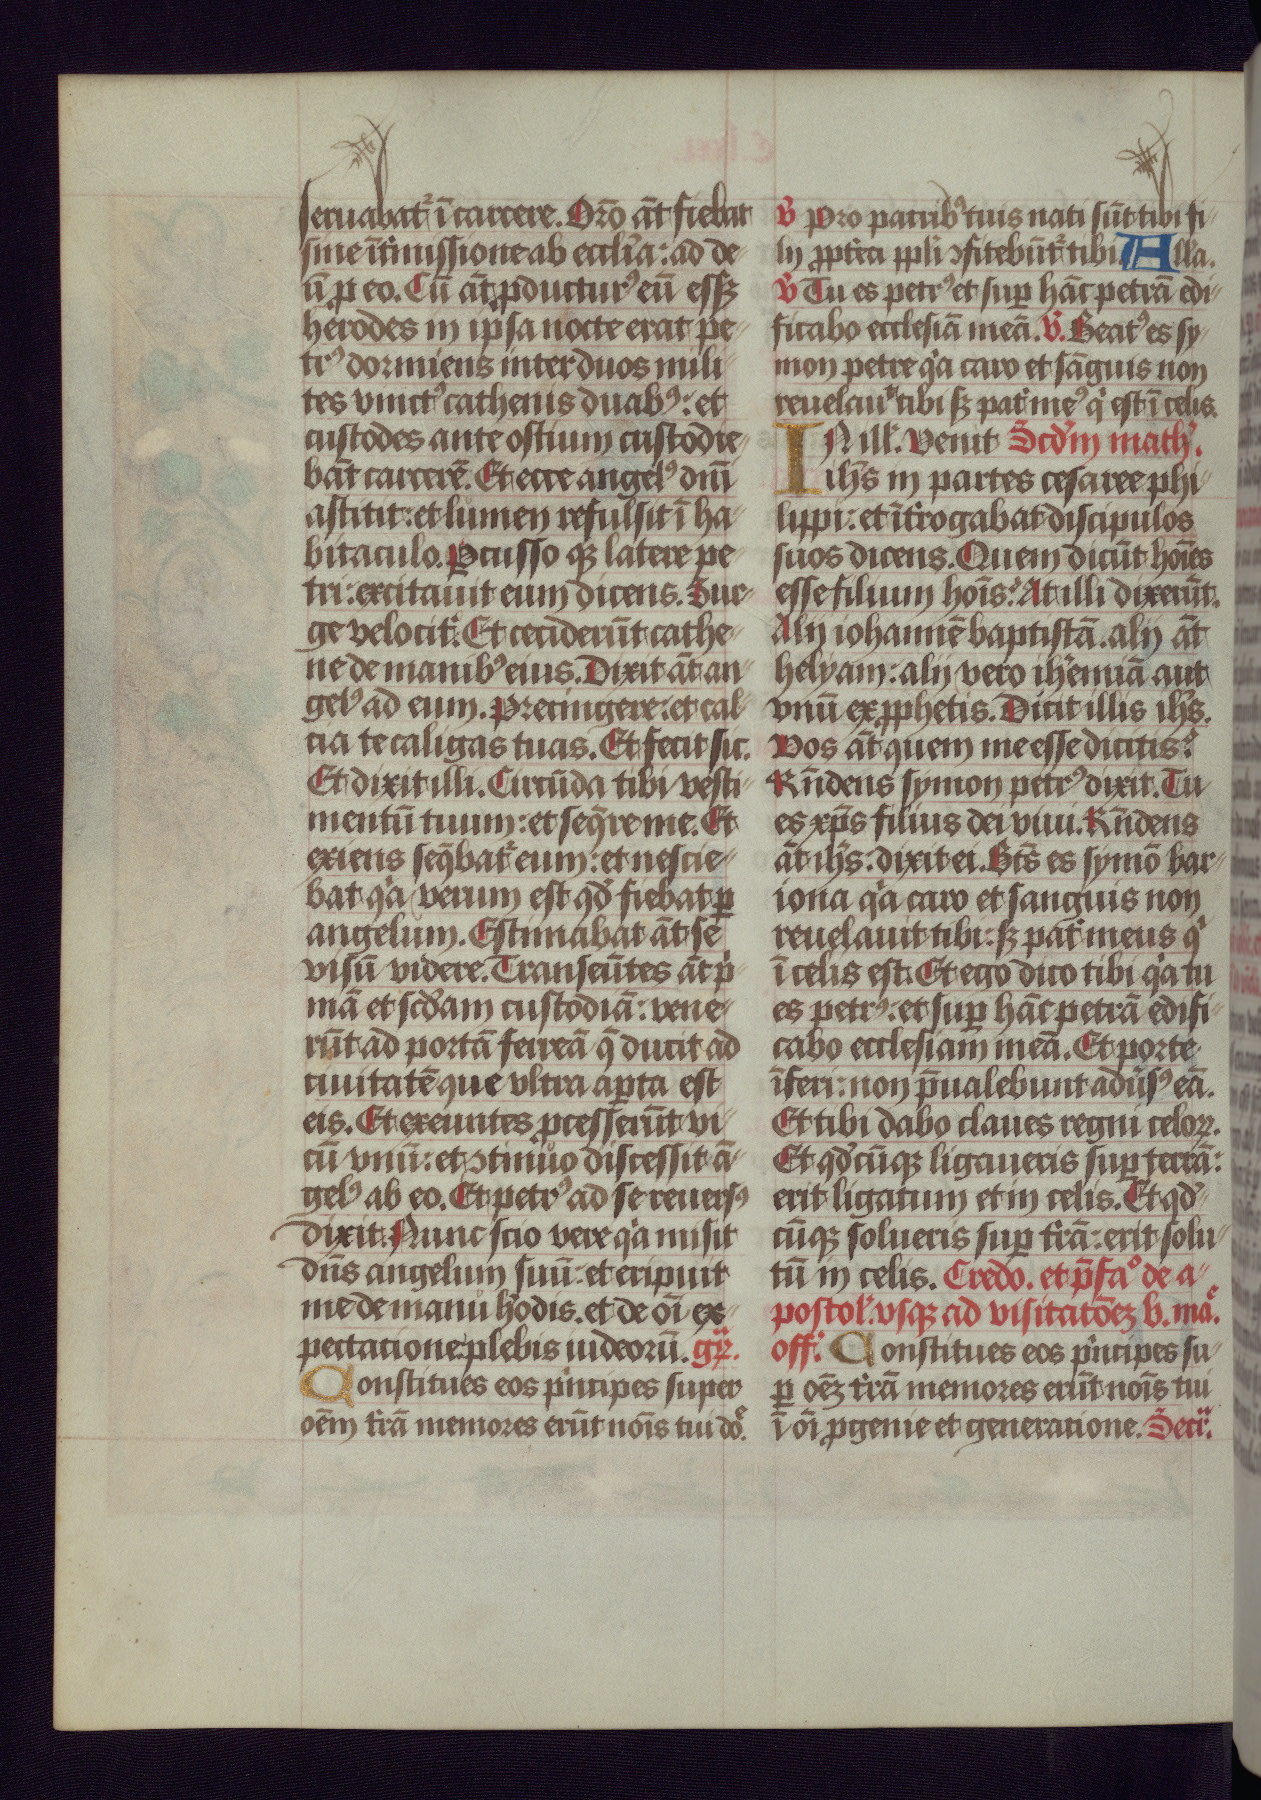 seruabat᷑ ī carcere. Orō āt fiebat
sine īt̄missione ab eccl̄ia: ad de-
ū ꝓ eo. Cū āt ꝓductur⁹ eū eſſꝫ
herodes in ipsa nocte erat pe-
tr⁹ dormiens inter duos mili-
tes vinct⁹ cathenis duab⁹: et
custodes ante ostium custodie-
bāt carcerē. Et ecce angel⁹ dnī
astitit: et lumen refulsit ī ha-
bitaculo. Pcusso qꝫ latere pe-
tri: excitauit eum dicens. Sur-
ge velocit᷑. Et ceciderūt cathe-
ne de manib⁹ eius. Dixit āt an-
gel⁹ ad eum. Precingere: et cal-
cia te caligas tuas. Et fecit sic.
Et dixit illi. Circūda tibi vesti-
mentū tuum: et seq̄re me. Et
exiens seq̄bat᷑ eum: et nescie-
bat qͥa verum est qđ fiebat ꝑ
angelum. Estimabat āt se
visū videre. Transeūtes āt pͥ-
mā et scđam custodiā: vene-
rūt ad portā ferreā q̄ ducit ad
ciuitatē que vltra aꝑta est
eis. Et exeuntes ꝓcesserūt vi-
cū vnū: et ꝯtinuo discessit ā-
gel⁹ ab eo. Et petr⁹ ad se reuers⁹
dixit. Nunc scio vere qͥa misit
dn̄s angelum suū: et eripuit
me de manu h̄odis. et de oī ex-
pectatione plebis iudeorū. gr̄.
Constitues eos pͥncipes super
oēm t̄rā memores erūt noīs tui dō.
V̄ Pro patrib⁹ tuis nati sūt tibi fi-
lij ꝓpt̄ea ppl̄i ꝯfitebūt᷑ tibi. All̄a.
V̄ Tu es petr⁹ et suꝑ hāc petrā edi-
ficabo ecclesiā meā. V̄. Beat⁹ es sy-
mon petre qͥa caro et sāguis non
reuelauͥt tibi sꝫ pat᷑ me⁹ qͥ est ī celis.
IN ill᷑. Venit Scđm math᷑.
ih̄s in partes cesaree phi-
lippi: et īt̄rogabat discipulos
suos dicens. Quem dicūt hoīes
esse filium hoīs? At illi dixerūt.
Alij iohannē baptistā. alij āt
helyam: alij vero ih̄emiā aut
vnū ex ꝓphetis. Dicit illis ih̄s.
Vos āt quem me esse dicitis?
Rn̄dens symon petr⁹ dixit. Tu
es xp̄s filius dei viui. Rn̄dens
āt ih̄s: dixit ei. Bt̄s es symō bar-
iona qͥa caro et sanguis non
reuelauit tibi: sꝫ pat᷑ meus qͥ
ī celis est. Et ego dico tibi qͥa tu
es petr⁹: et suꝑ hāc petrā edifi-
cabo ecclesiam meā. Et porte
īferi: non p̄ualebunt adūs⁹ eā.
Et tibi dabo claues regni celoꝝ.
Et qđcūqꝫ ligaueris suꝑ terrā:
erit ligatum et in celis. Et qđ-
cūqꝫ solueris suꝑ t̄rā: erit solu-
tū in celis. Credo. et p̄fa͛o de a-
postol᷑. vsqꝫ ad visitatōeꝫ b. ma͛.
off᷑. Constitues eos pͥncipes su-
ꝑ oēꝫ t̄rā memores erūt noīs tui
ī oī ꝓgenie et generatione. Secr᷑.